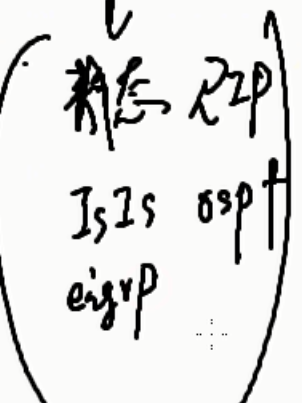 静态 RIP
IsIs ospf
eigrp